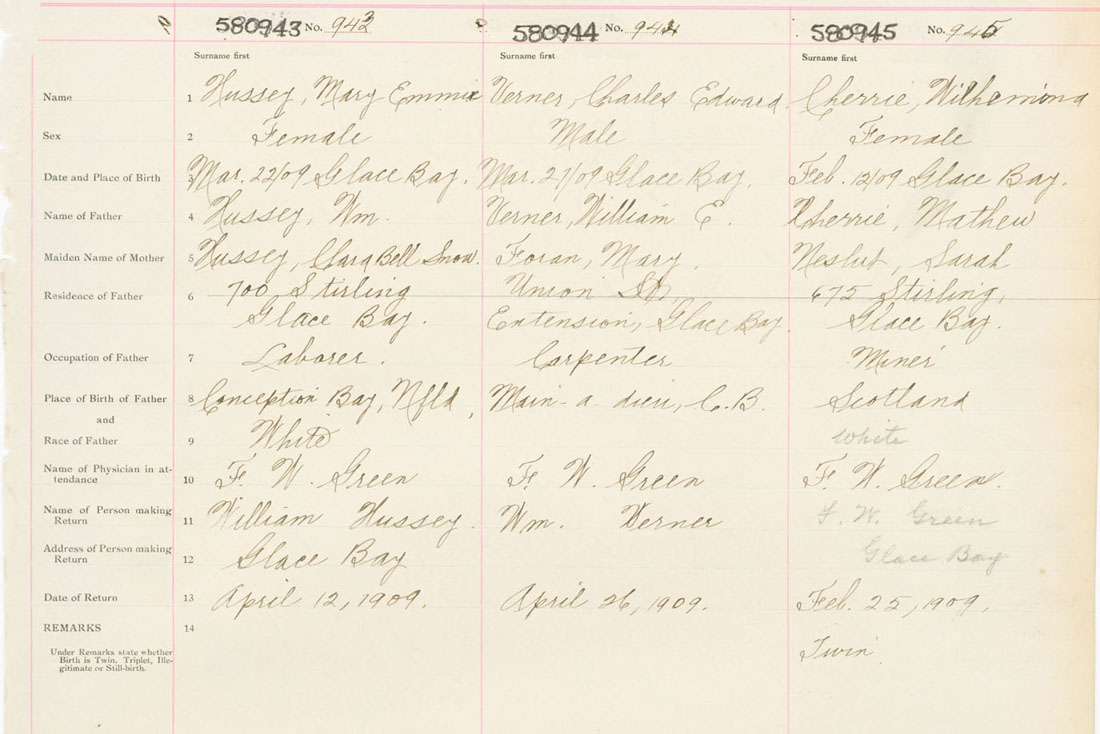 580943 No. 943 580944 No. 944 580945 No. 945
Surname first Surname first Surname first
Name 1 Hussey, Mary Emmie Verner, Charles Edward Cherrie, Wilhemiona
Sex 2 Female Male Female
Date and Place of Birth 3 Mar. 22/09 Glace Bay. Mar. 21/09 Glace Bay. Feb. 12/09 Glace Bay.
Name of Father 4 Hussey, Wm. Verner, William E. Cherrie, Mathew
Maiden Name of Mother 5 Hussey, Clara Bell Snow. Foran, Mary. Sarah
Residence of Father 6 700 Stirling Union St. 675 Stirling,
Glace Bay. Extension, Glace Bay. Glace Bay.
Occupation of Father 7 Laborer. Carpenter Miner
Place of Birth of Father 8 Conception Bay, Nfld, Main-a-dieu, C.B. Scotland
and
Race of Father 9 White White
Name of Physician in at-
tendance 10 F. W. Green F. W. Green F. W. Green.
Name of Person making
Return 11 William Hussey. Wm. Verner F. W. Green
Address of Person making
Return 12 Glace Bay Glace Bay
Date of Return 13 April 12, 1909. April 26, 1909. Feb. 25, 1909.
REMARKS 14
Under Remarks state whether Twin.
Birth is Twin, Triplet, Ille-
gitimate or Still-birth.